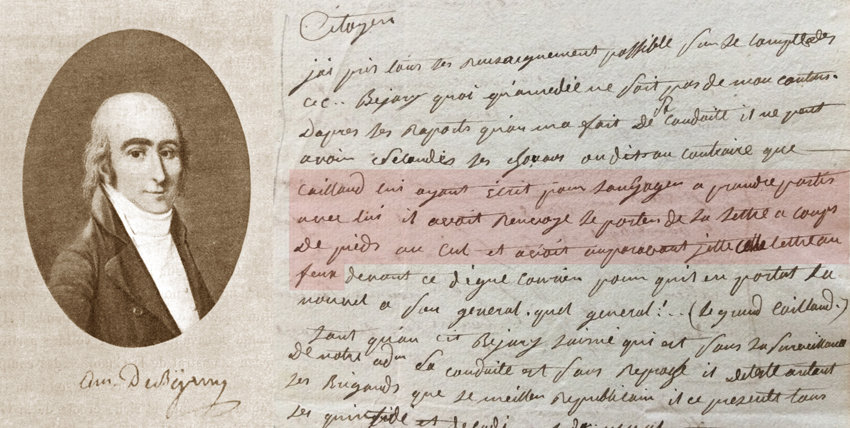 Am. De Béjarry
Citoyen
j'ai pris tous les renseignement possible sur le compte des
cec.. Béjary quoi qu'amedée ne soit pas de mon canton.
Dapres les Raports qu'on ma fait de sa conduite il ne peut
avoir les chouans on dit au contraire que
Caillaud lui ayant Écrit pour Lengager a prendre partis
avec lui il avoit Renvoyé le porteur de la lettre a coups
De pieds au Cul et avoit auparavant jetté cette lettre au
feux devant ce digne Courier pour qu'il en portat la
nouvel a son general. quel general!... (le grand Caillaud.)
tant qu'au cit Béjary l'ainé qui est sous la surveillance
De notre adm sa conduite est sans Reproge il deteste autant
les Brigands que le meilleur Republicain il ce present tous
Les